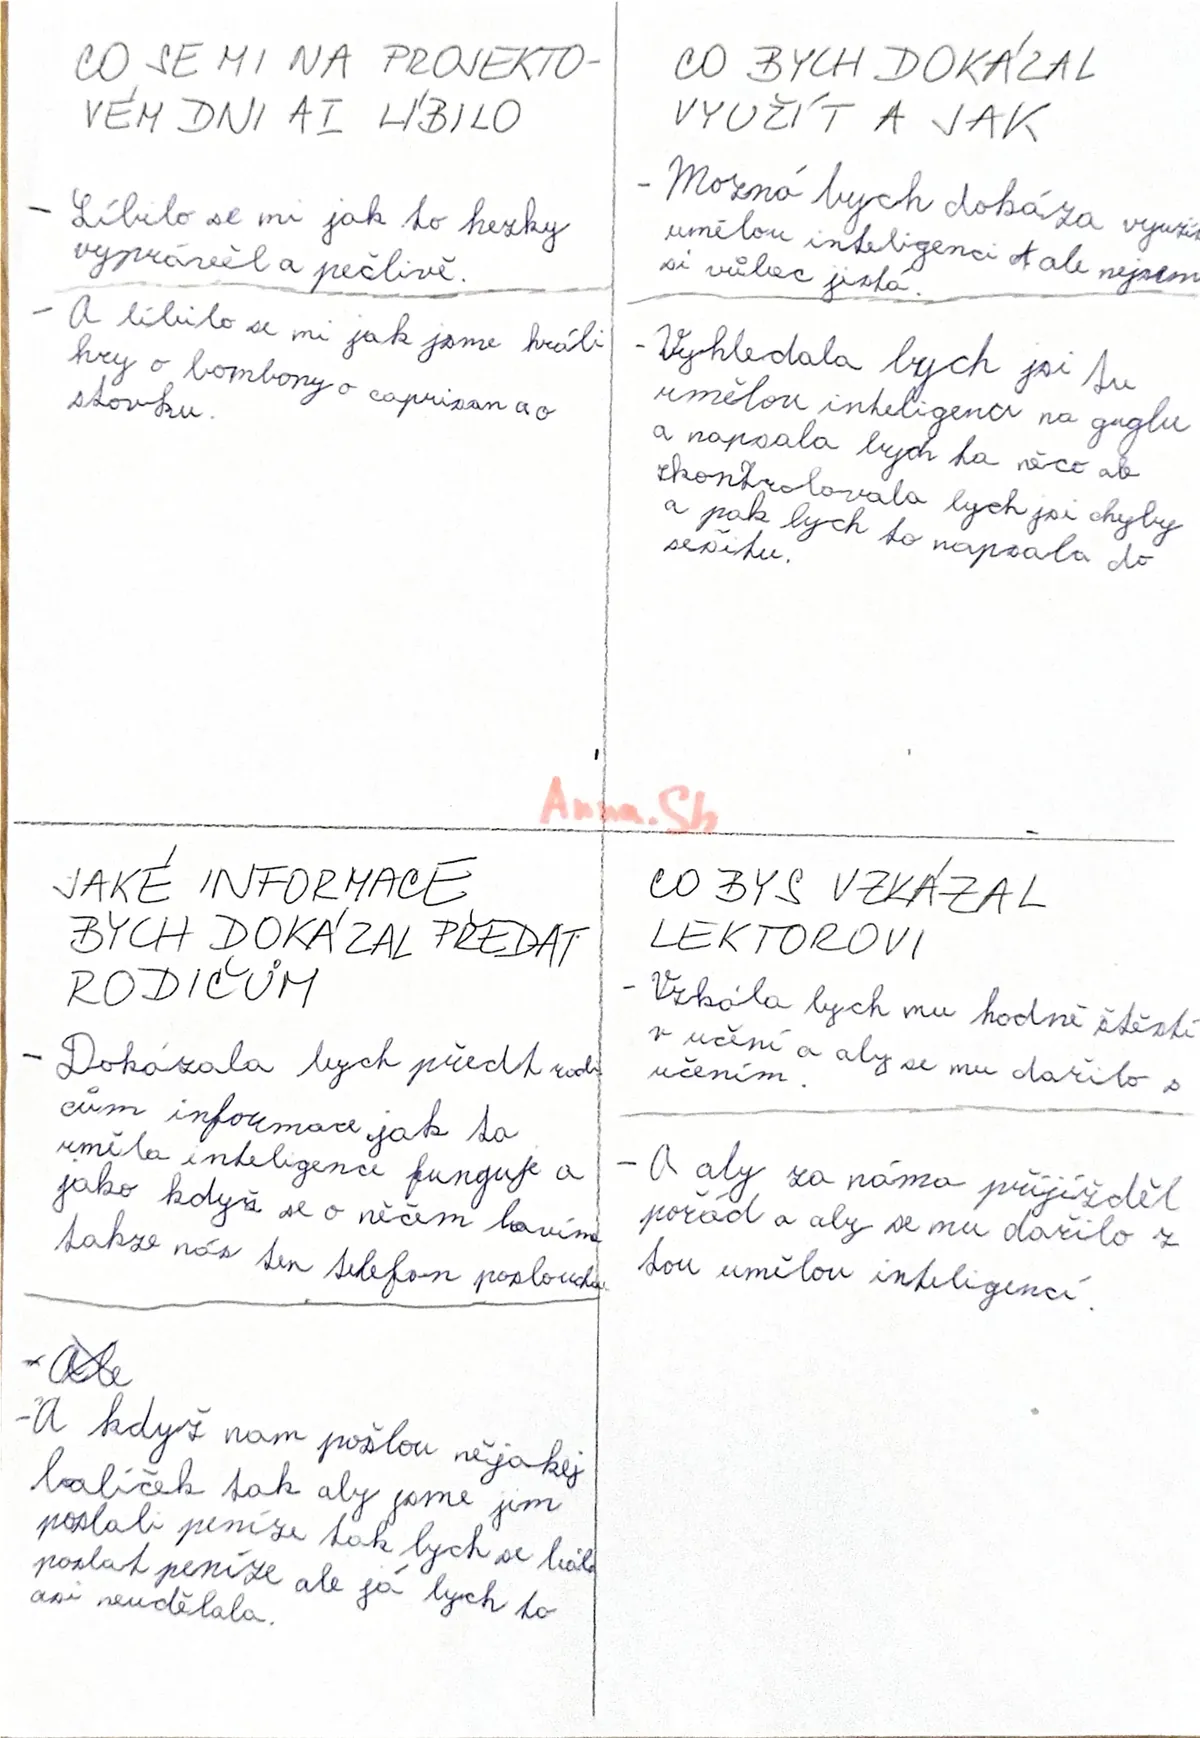 CO SE MI NA PROJEKTO-
VÉM DNI AI LÍBILO
- Líbilo se mi jak to hezky
vyprávěl a pečlivě.
- A líbilo se mi jak jsme hráli
hry o bombony o caprisan a o
stovku.
CO BYCH DOKÁZAL
VYUŽÍT A JAK
- Mozná bych dokáza využít
umělou inteligenci ale nejsem
si vůbec jistá.
- Vyhledala bych jsi tu
umělou inteligenci na guglu
a napsala bych ta něco ab
zkontrolovala bych jsi chyby
a pak bych to napsala do
sešitu.
Anna.Sh
JAKÉ INFORMACE
BYCH DOKÁZAL PŘEDAT
RODIČŮM
- Dokázala bych předt rodi
čům informace jak ta
uměla inteligence funguje a
jako když se o něčem bavíme
takze nás ten telefon poslouchá
- A když nam pošlou nějakej
balíček tak aby jsme jim
poslali peníze tak bych se bála
poslat peníze ale já bych to
asi neudělala.
CO BYS VZKÁZAL
LEKTOROVI
- Vzkála bych mu hodně štěstí
v učení a aby se mu dařilo s
učením.
- A aby za náma přijížděl
pořád a aby se mu dařilo z
tou umělou inteligencí.